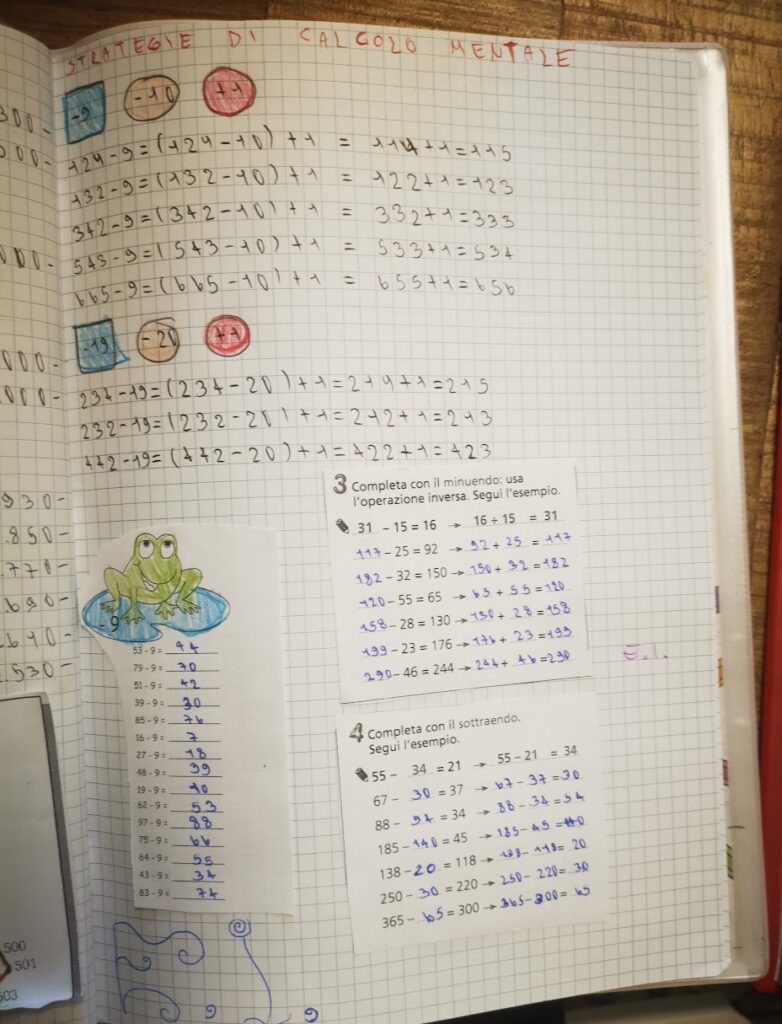 STRATEGIE DI CALCOLO MENTALE
-9 -10 +1
124-9=(124-10)+1 = 114+1=115
132-9=(132-10)+1 = 122+1=123
342-9=(342-10)+1 = 332+1=333
543-9=(543-10)+1 = 533+1=534
665-9=(665-10)+1 = 655+1=656
-19 -20 +1
234-19=(234-20)+1=214+1=215
232-19=(232-20)+1=212+1=213
442-19=(442-20)+1=422+1=423
-9
53 - 9 = 44
79 - 9 = 70
51 - 9 = 42
39 - 9 = 30
85 - 9 = 76
16 - 9 = 7
27 - 9 = 18
48 - 9 = 39
19 - 9 = 10
62 - 9 = 53
97 - 9 = 88
75 - 9 = 66
64 - 9 = 55
43 - 9 = 34
83 - 9 = 74
3 Completa con il minuendo: usa
l'operazione inversa. Segui l'esempio.
31 - 15 = 16 → 16 + 15 = 31
117 - 25 = 92 → 92 + 25 = 117
182 - 32 = 150 → 150 + 32 = 182
120 - 55 = 65 → 65 + 55 = 120
158 - 28 = 130 → 130 + 28 = 158
199 - 23 = 176 → 176 + 23 = 199
290 - 46 = 244 → 244 + 46 = 290
E.I.
4 Completa con il sottraendo.
Segui l'esempio.
55 - 34 = 21 → 55 - 21 = 34
67 - 30 = 37 → 67 - 37 = 30
88 - 54 = 34 → 88 - 34 = 54
185 - 140 = 45 → 185 - 45 =
138 - 20 = 118 → 138 - 118 = 20
250 - 30 = 220 → 250 - 220 = 30
365 - 65 = 300 → 365 - 300 = 65
300-
000-
000-
000-
930-
.850-
.770-
.690-
.530-
500
501
503